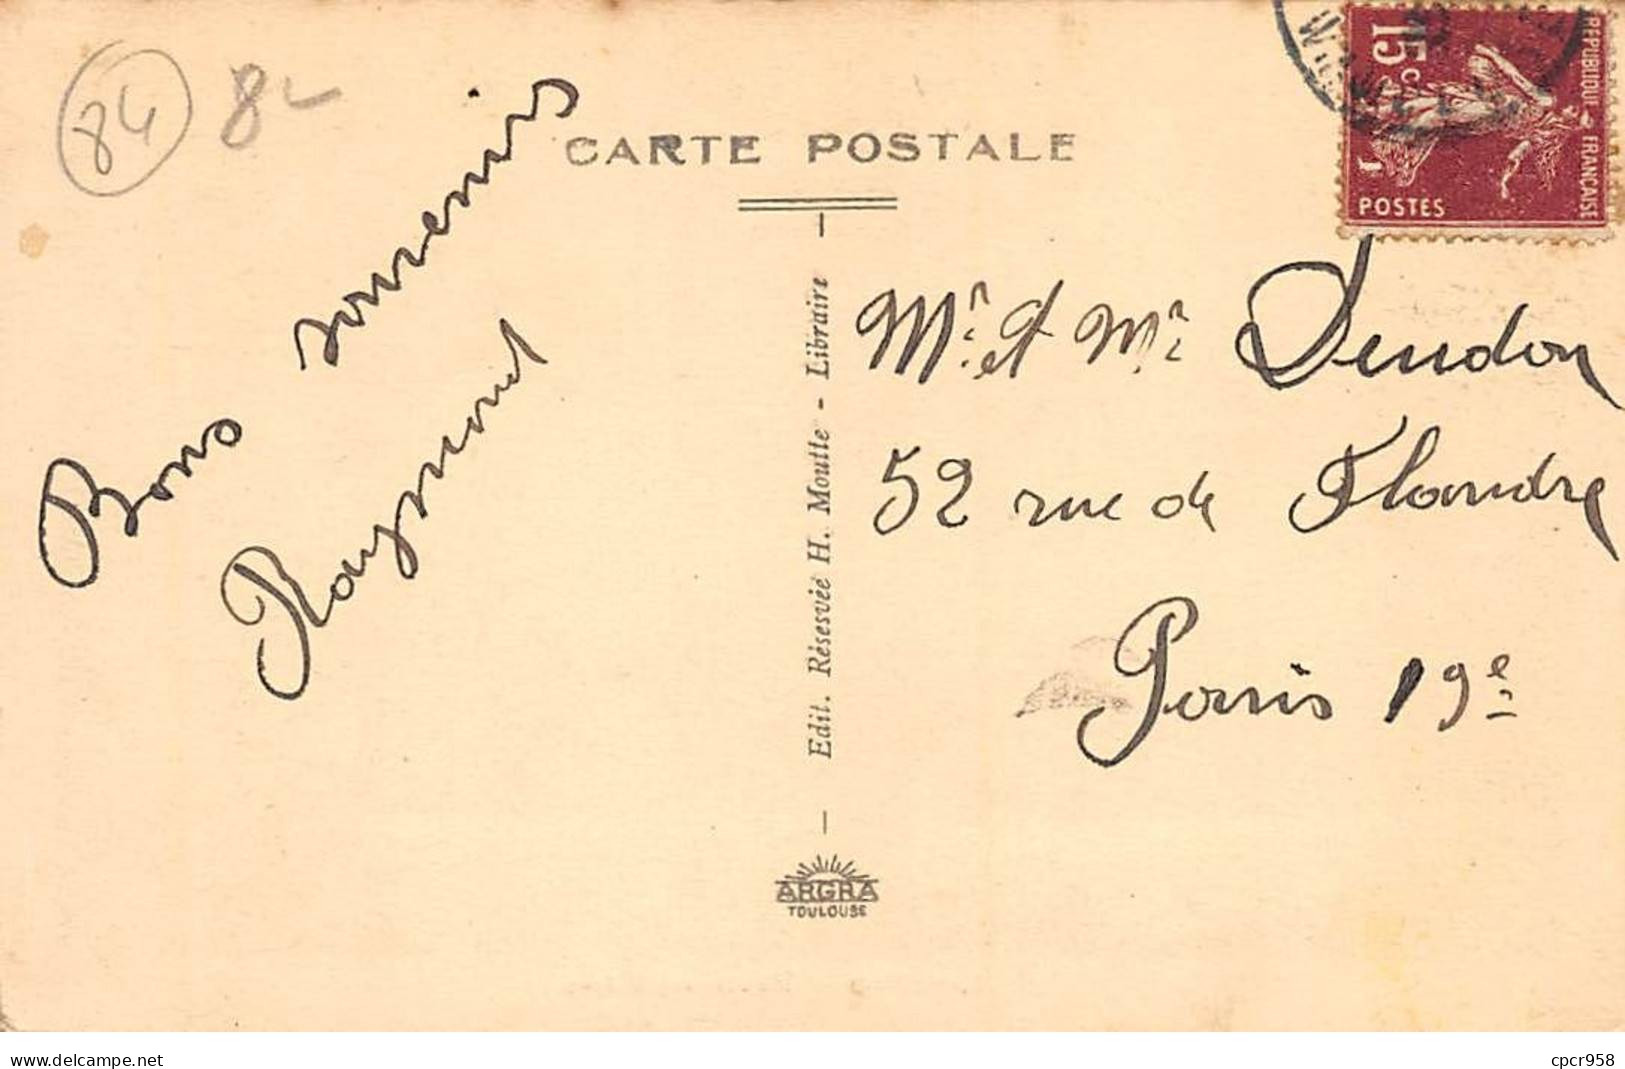 84
8
CARTE POSTALE
15 CES
REPUBLIQUE FRANÇAISE
POSTES
Bons souvenirs
Raymond
Edit. Résesvée H. Moutte - Libraire
Mr. et Mr Dendon
52 rue de Flandre
Paris 19e
ARGRA
TOULOUSE
www.delcampe.net
cpcr958